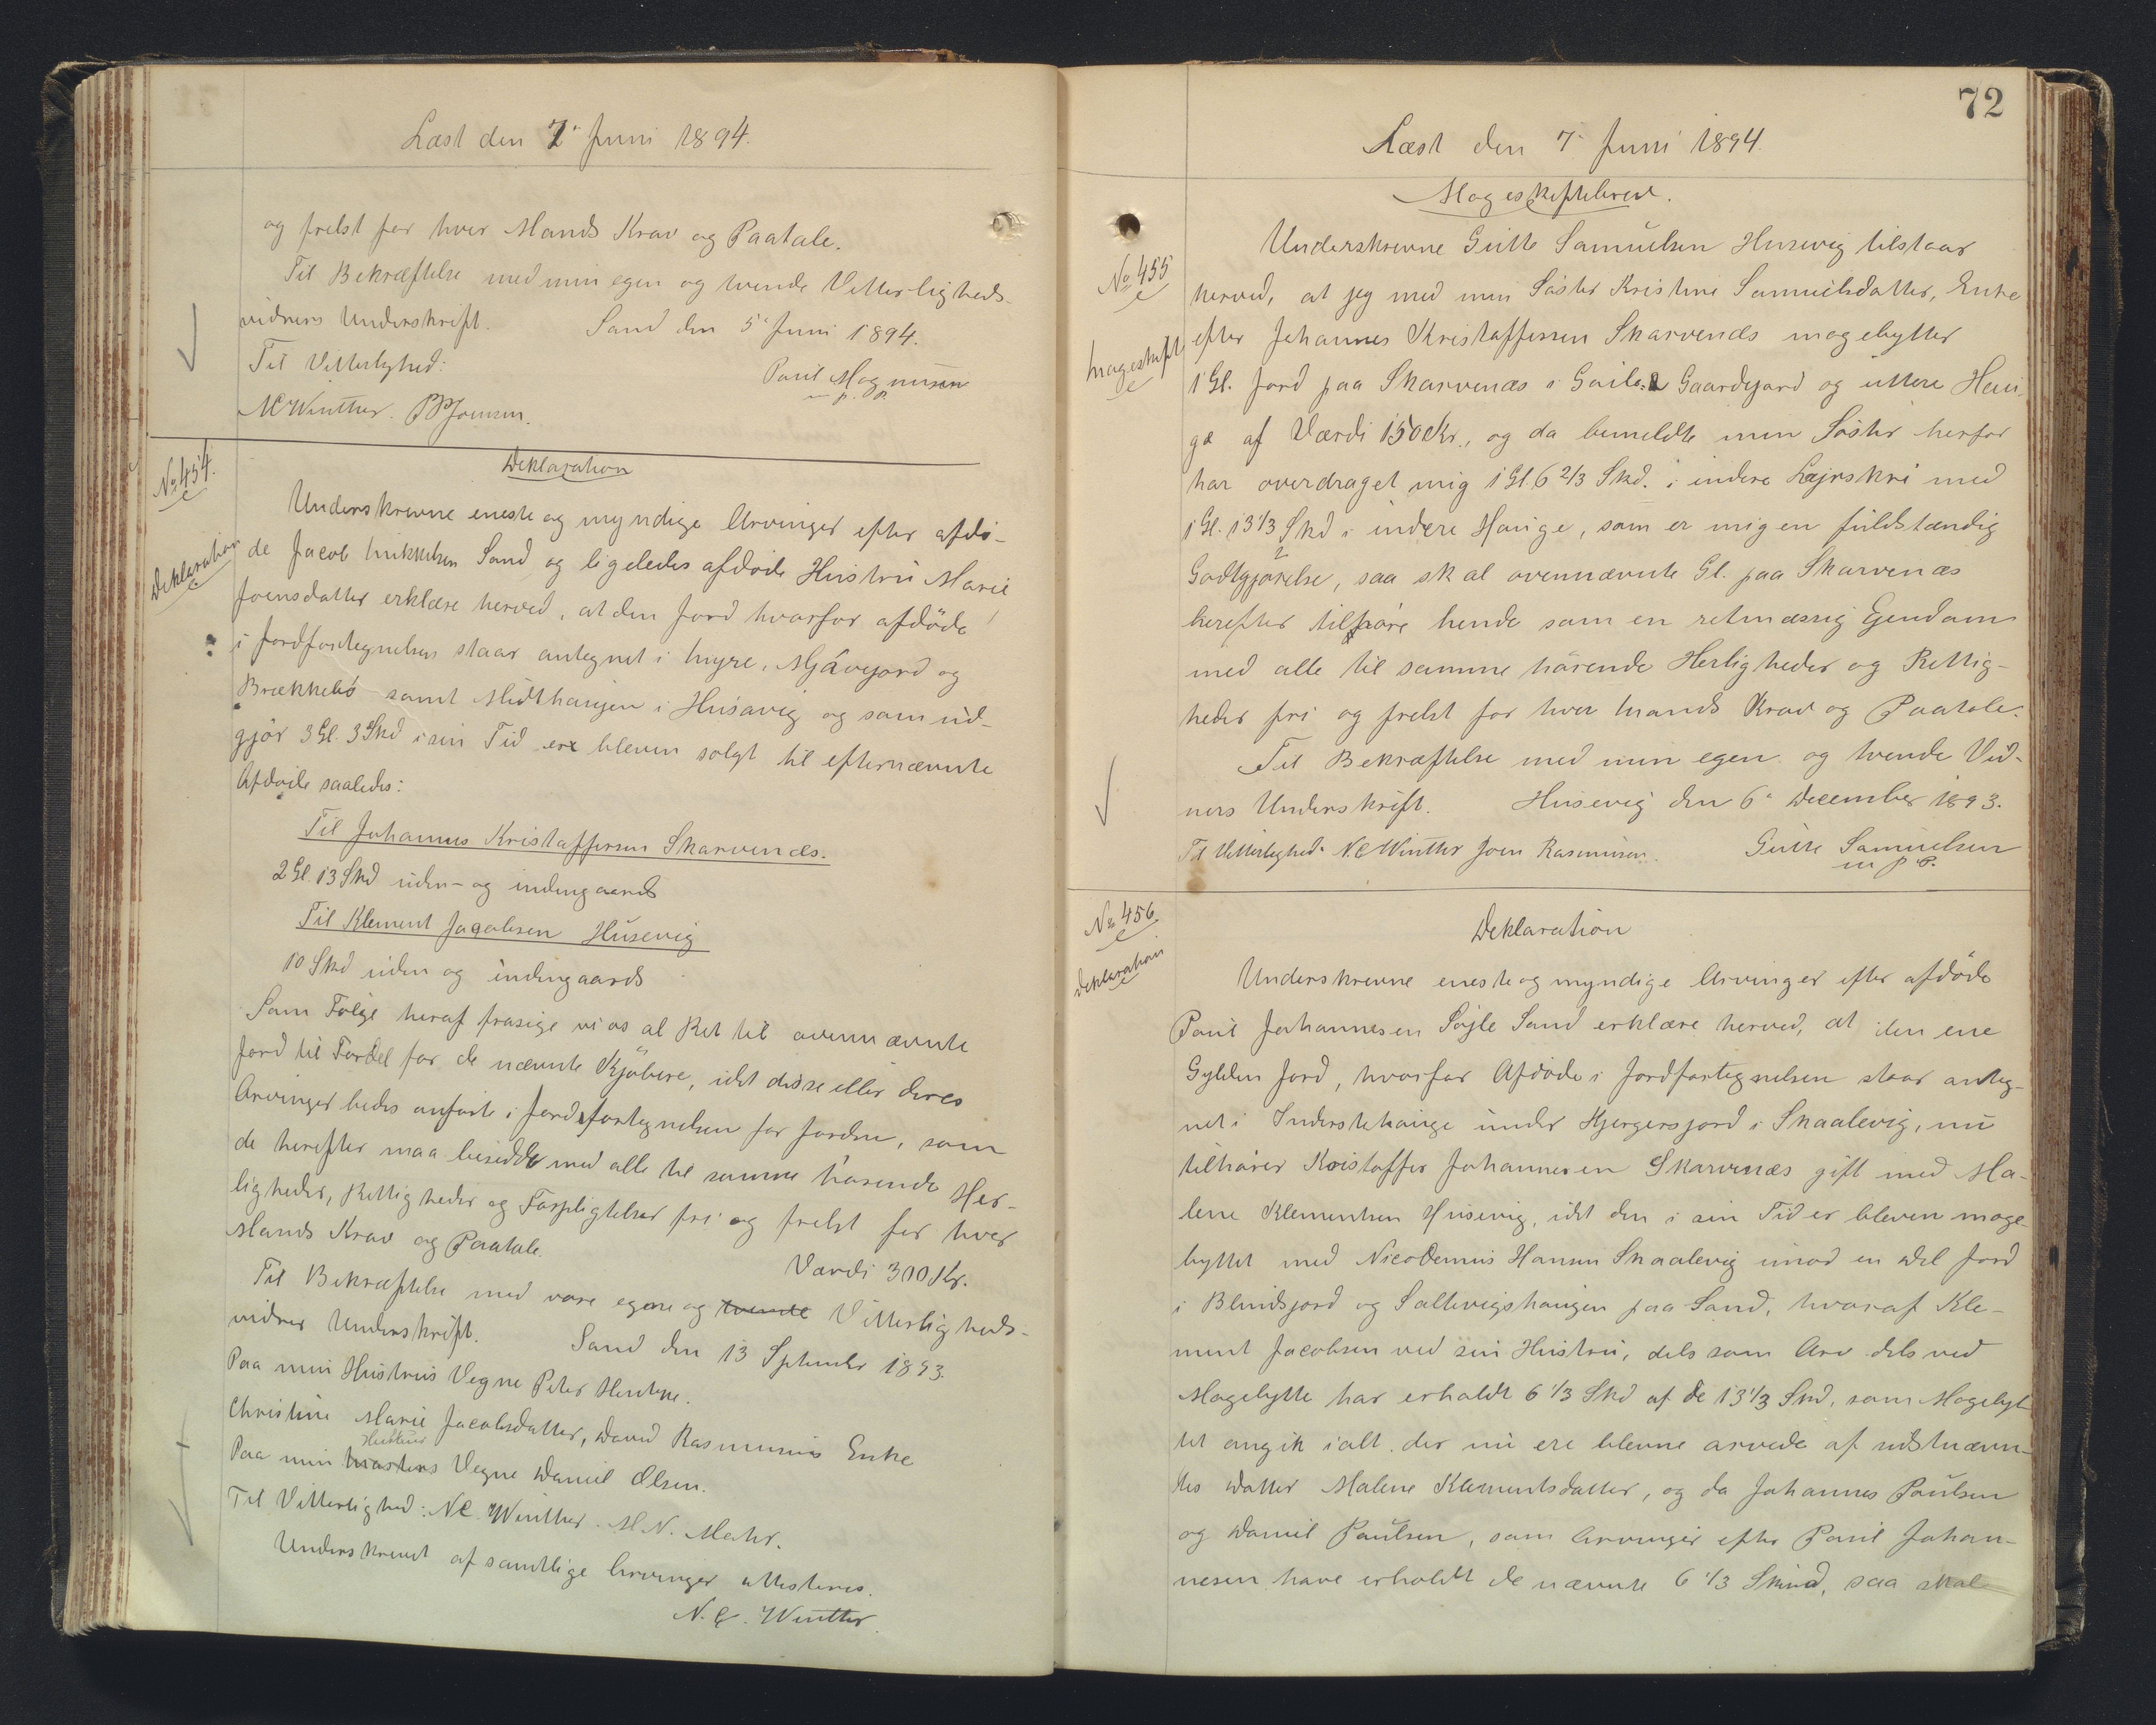 Læst den 7' Juni 1894.
og frelst for hver Mands Krav og Paatale.
Til Bekræftelse med min egen og tvende Vitterligheds-
vidners Underskrift. Sand den 5' Juni 1894.
Til Vitterlighed: Poul Magnusen
N C Winther. P P Joensen. m. p. P.
No 454.
Deklaration
Deklaration
Underskrevne eneste og myndige Arvinger efter afdø-
de Jacob Mikkelsen Sand og ligeledes afdøde Hustru Marie
Joensdatter erklære herved, at den Jord hvorfor afdøde
i Jordfortegnelsen staar antegnet i Myre, Mjávejord og
Brekkebø samt Midthaugen i Húsavig og som ud-
gjør 3 Gl. 3 Skd i sin Tid ere bleven solgt til efternævnte
Afdøde saaledes:
Til Johannes Kristoffersen Skarvenæs.
2 Gl. 13 Skd uden- og indengaards
Til Klement Jacobsen Húsevig
10 Skd uden og indengaards
Som Følge heraf frasige vi os al Ret til ovennævnte
Jord til Fordel for de nævnte Kjøbere, idet disse eller deres
Arvinger bedes anførte i Jordfortegnelsen for Jorden, som
de herefter maa besidde med alle til samme hørende Her-
ligheder, Rettigheder og Forpligtelser fri og frelst for hver
Mands Krav og Paatale. Værdi 300 Kr.
Til Bekræftelse med vore egne og tvende Vitterligheds-
vidners Underskrift. Sand den 13 September 1893.
Paa min Hustrus Vegne Peter
Christine Marie Jacobsdatter, David Rasmussens Enke
Hustrues
Paa min Vegne Daniel Olsen.
Til Vitterlighed: N C. Winther. M. N. Mohr.
Underskrevet af samtlige Arvinger attesteres.
N. C. Winther.
72
Læst den 7' Juni 1894.
Mageskiftebrev.
No 455
Mageskift
Underskrevne Gutte Samuelsen Husevig tilstaar
herved, at jeg med min Søster Kristine Samuelsdatter, Enke
efter Johannes Kristoffersen Skarvenæs magebytter
1 Gl. Jord paa Skarvenæs i Gaardejord og uttere Hau-
ge af Værdi 150 Kr., og da bemeldte min Søster herfor
har overdraget mig 1 Gl. 6 2/3 Skd. i indere Lejrskri med
1 Gl. 13 1/3 Skd i indere Hauge, som er mig en fuldstændig
Godtgjørelse, saa skal ovennævnte Gl. paa Skarvenæs
herefter tilhøre hende som en retmæssig Ejendom
med alle til samme hørende Herligheder og Rettig-
heder fri og frelst for hver Mands Krav og Paatale.
Til Bekræftelse med min egen og tvende Vid-
ners Underskrift. Husevig den 6' December 1893.
Til Vitterlighed. N. C Winther Joen Rasmussen. Gutte Samuelsen
m p P.
No 456
Deklaration
Deklaration
Underskrevne eneste og myndige Arvinger efter afdøde
Poul Johannesen Søjle Sand erklære herved, at den ene
Gylden Jord, hvorfor Afdøde i Jordfortegnelsen staar anteg-
net i Inderstehauge under Hjergersjord i Skaalevig, nu
tilhører Kristoffer Johannesen Skarvenæs gift med Ma-
lene Klementsen Husevig, idet den i sin Tid er bleven mage-
byttet med Nicodemus Hansen Skaalevig imod en Del Jord
i Blindsjord og Saltvigshaugen paa Sand, hvoraf Kle-
ment Jacobsen ved sin Hustru, dels som Arv dels ved
Magebytte har erholdt 6 1/3 Skd af de 13 1/3 Skd, som Magebyt-
tet angik ialt, der nu ere blevne arvede af sidstnævn-
tes Datter Malene Klementsdatter, og da Johannes Poulsen
og Daniel Poulsen, som Arvinger efter Poul Johan-
nesen have erholdt de nævnte 6 1/3 Skind, saa skal